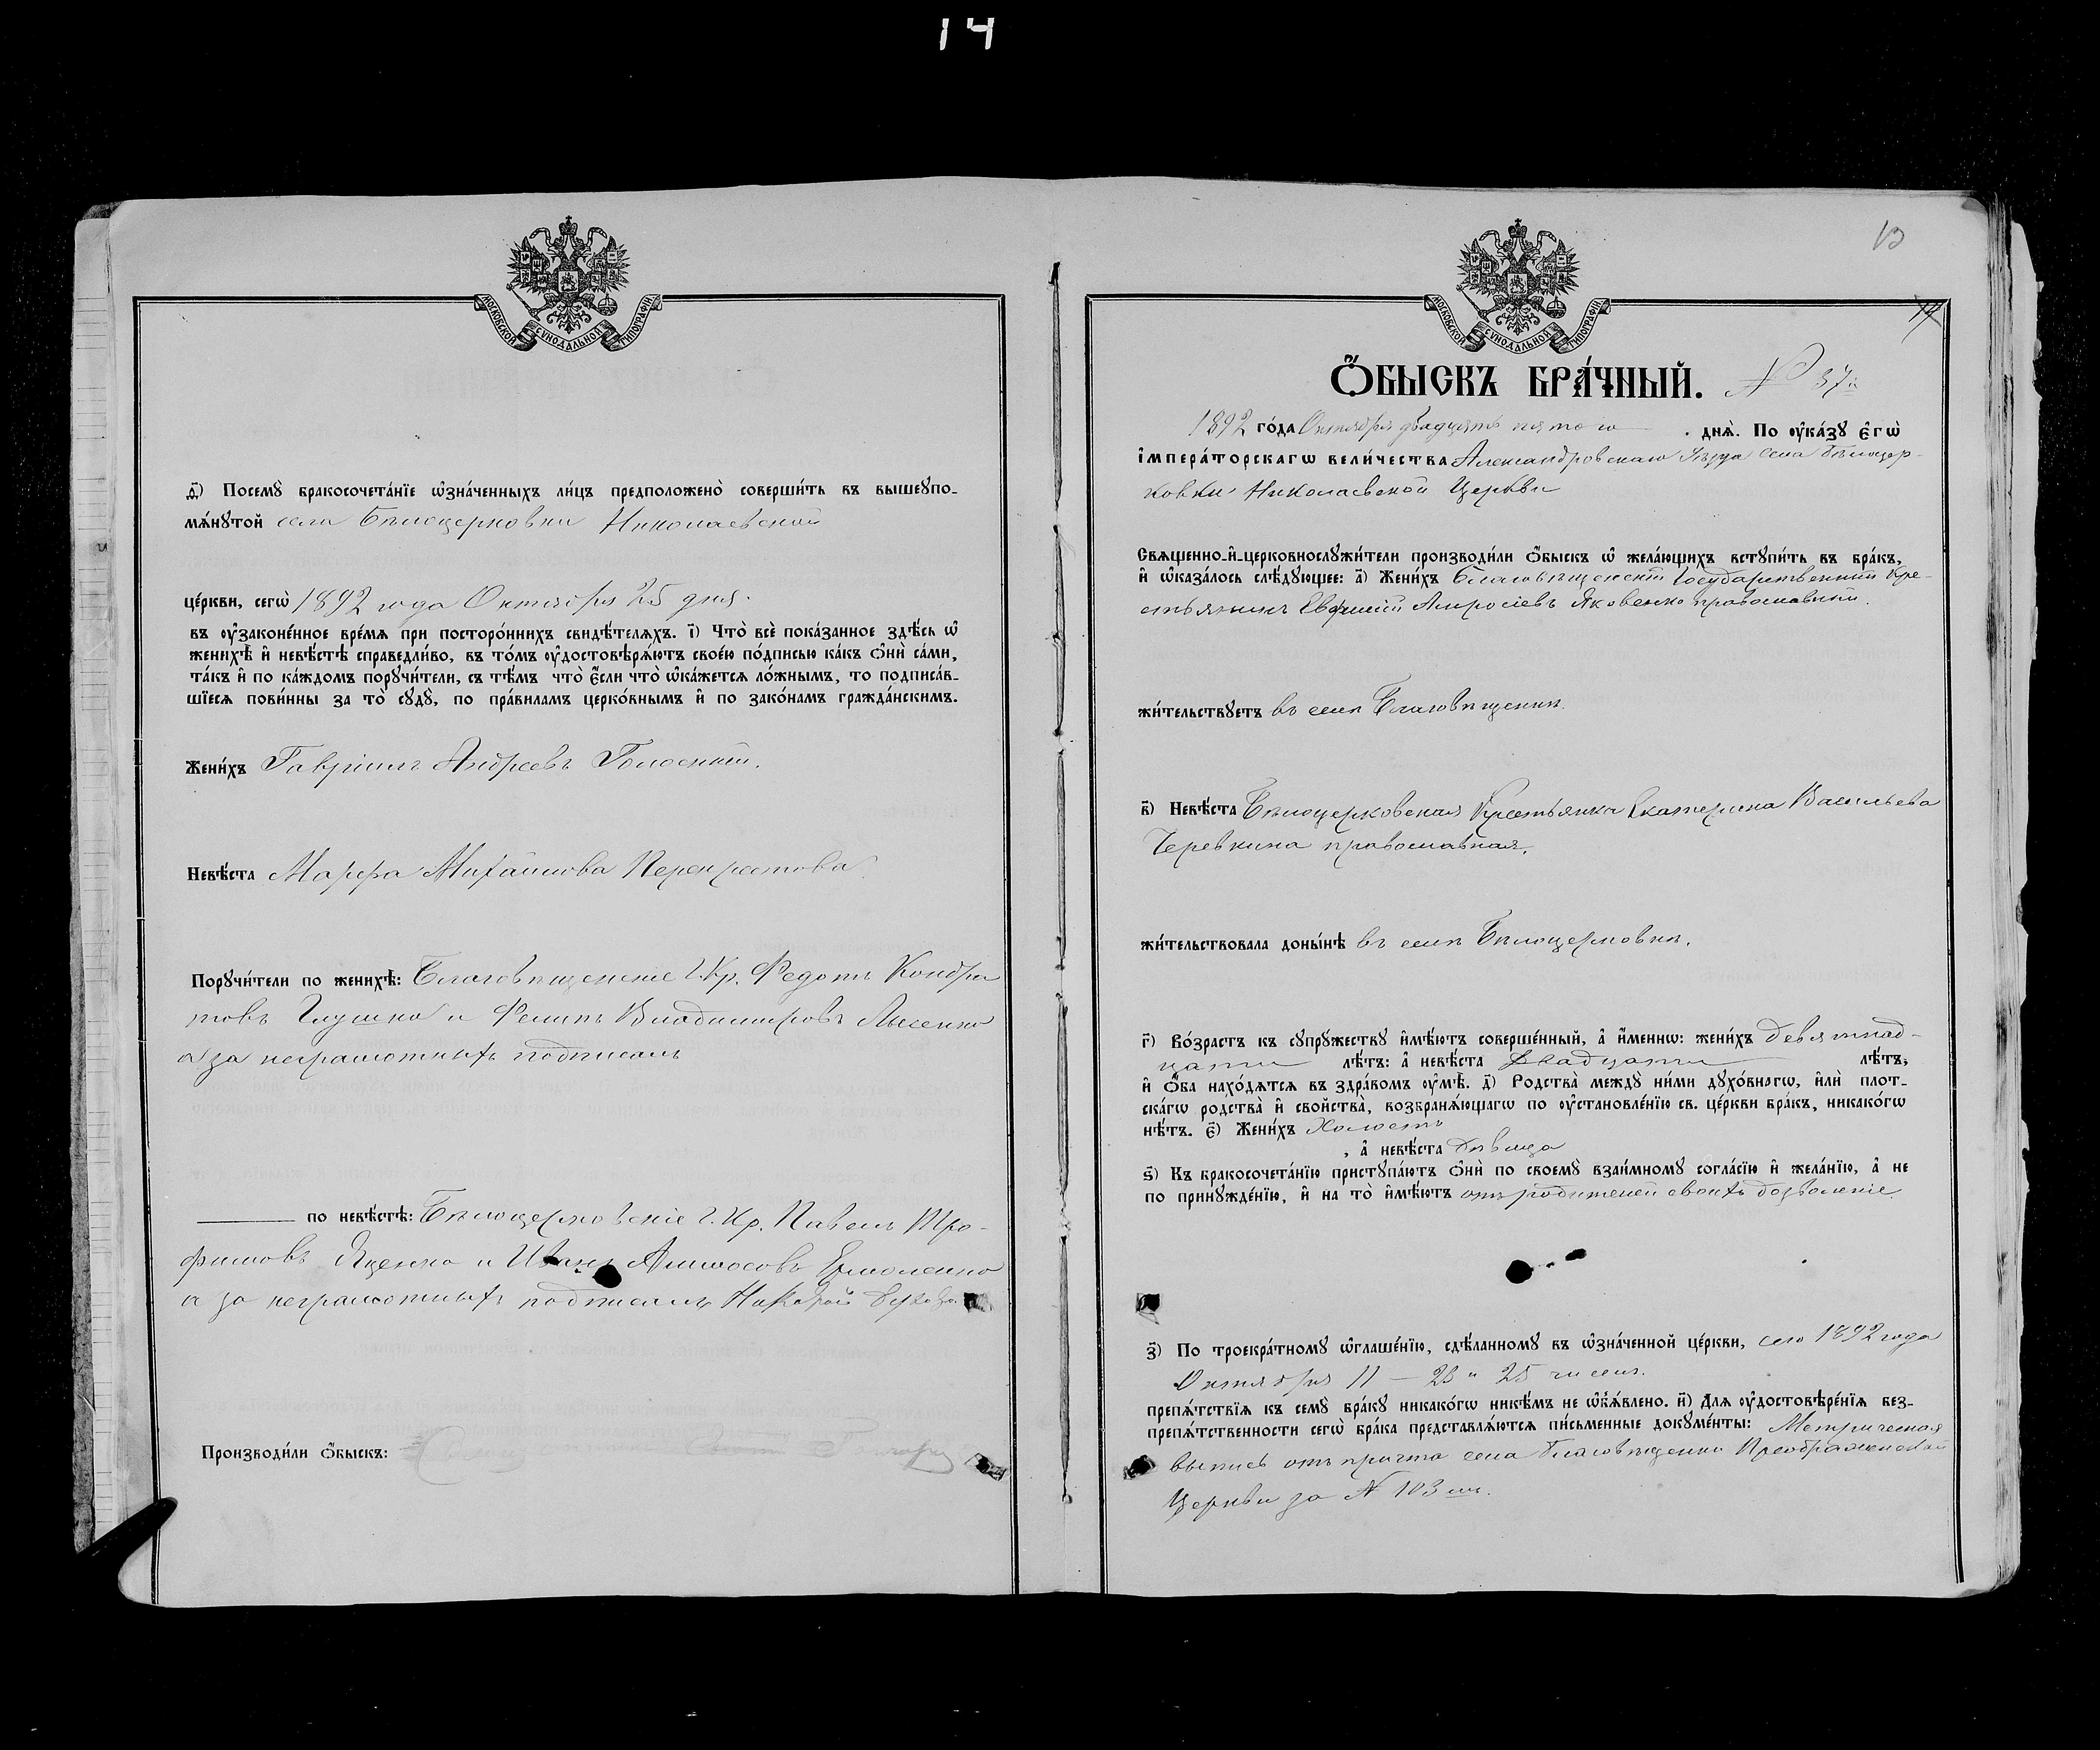 14
МОСКОВСКОЙ СѴНОДАЛЬНОЙ ТИПОГРАФІИ
ѳ҃) Посемꙋ̀ бракосочета́нїе ѡ҆зна́ченныхъ ли́цъ предположено̀ соверши́ть въ вышеꙋпо-
мѧ́нꙋтой села Бѣлоцерковки Николаевской
це́ркви, сегѡ̀ 1892 года Октября 25 дня.
въ ᲂу҆законе́нное вре́мѧ при посторо́ннихъ свидѣ́телѧхъ. і҃) Что̀ всѐ пока́занное здѣ́сь ѡ҆
женихѣ̀ и҆ невѣ́стѣ справедли́во, въ то́мъ ᲂу҆достовѣрѧ́ютъ свое́ю по́дписью ка́къ ѻ҆нѝ са́ми,
та́къ и҆ по ка́ждомъ порꙋчи́тели, съ тѣ́мъ что̀ є҆́сли что̀ ѡ҆ка́жетсѧ ло́жнымъ, то подписа́в-
шїесѧ пови́нны за то̀ сꙋдꙋ̀, по пра́виламъ церко́внымъ и҆ по зако́намъ гражда́нскимъ.
Жени́хъ Гавріилъ Андреевъ Голоскій.
Невѣ́ста Марфа Михайлова Перекрестова.
Порꙋчи́тели по женихѣ̀: Благовѣщенскіе Г. Кр. Федотъ Кондра
товъ Глушко и Филипъ Владиміровъ Лысенко
а за неграмотныхъ подписалъ
по невѣ́стѣ: Бѣлоцерковскіе Г. Кр. Павелъ Тро-
фимовъ Яценко и Иванъ Амвосовъ Ермоленко
а за неграмотныхъ подписалъ
Производи́ли ѻ҆́быскъ:
13
14
МОСКОВСКОЙ СѴНОДАЛЬНОЙ ТИПОГРАФІИ
Ѻ҆́БЫСКЪ БРА́ЧНЫЙ. № 37й
1892 го́да Октября двадцать пятого . днѧ̀. По ᲂу҆ка́зꙋ є҆гѡ̀
і҆мпера́торскагѡ вели́чества Александровскаго Уѣзда села Бѣлоцер-
ковки Николаевской Церкви
Сващенно-и҆-церковнослꙋжи́тели производи́ли ѻ҆́быскъ ѡ҆ жела́ющихъ встꙋпи́ть въ бра́къ,
и҆ ѡ҆каза́лось слѣ́дꙋющее: а҃) Жени́хъ Благовѣщенскій Государственный Кре-
стьянинъ Евфимій Амросіевъ Яковенко православный.
жи́тельствꙋетъ въ селѣ Благовѣщенкѣ.
в҃) Невѣ́ста Бѣлоцерковская Крестьянка Екатерина Васильева
Черевкина православная.
жи́тельствовала доны́нѣ въ селѣ Бѣлоцерковкѣ.
г҃) Во́зрастъ къ сꙋпрꙋ́жествꙋ и҆мѣ́ютъ соверше́нный, а҆ и҆́меннѡ: жени́хъ девятнад-
цати лѣ́тъ: а҆ невѣ́ста двадцати лѣ́тъ,
и҆ ѻ҆́ба нахо́дѧтсѧ въ здра́вомъ ᲂу҆мѣ̀. д҃) Родства̀ междꙋ̀ ни́ми дꙋхо́внагѡ, и҆лѝ плот-
ска́гѡ родства̀ и҆ свойства̀, возбранѧ́ющагѡ по ᲂу҆становле́нїю св. це́ркви бра́къ, никако́гѡ
нѣ́тъ. є҃) Жени́хъ Холостъ
, а҆ невѣ́ста Дѣвица
ѕ҃) Къ бракосочета́нїю пристꙋпа́ютъ ѻ҆нѝ по своемꙋ̀ взаи́мномꙋ согла́сїю и҆ жела́нїю, а҆ не
по принꙋжде́нїю, и҆ на то̀ и҆мѣ́ютъ отъ родителей своихъ дозволеніе
з҃) По троекра́тномꙋ ѡ҆глаше́нїю, сдѣ́ланномꙋ въ ѡ҆зна́ченной це́ркви, сего 1892 года
Октября 11 – 23 и 25 числъ.
препѧ́тствїѧ къ семꙋ̀ бра́кꙋ никако́гѡ никѣ́мъ не ѡ҆б̾ѧ́влено. и҃) Длѧ ᲂу҆достовѣре́нїѧ без-
препѧ́тственности сегѡ̀ бра́ка представлѧ́ютсѧ пи́сьменные докꙋме́нты: Метрическая
выпись отъ причта села Благовѣщенки Преображенской
Церкви за № 103 мъ.